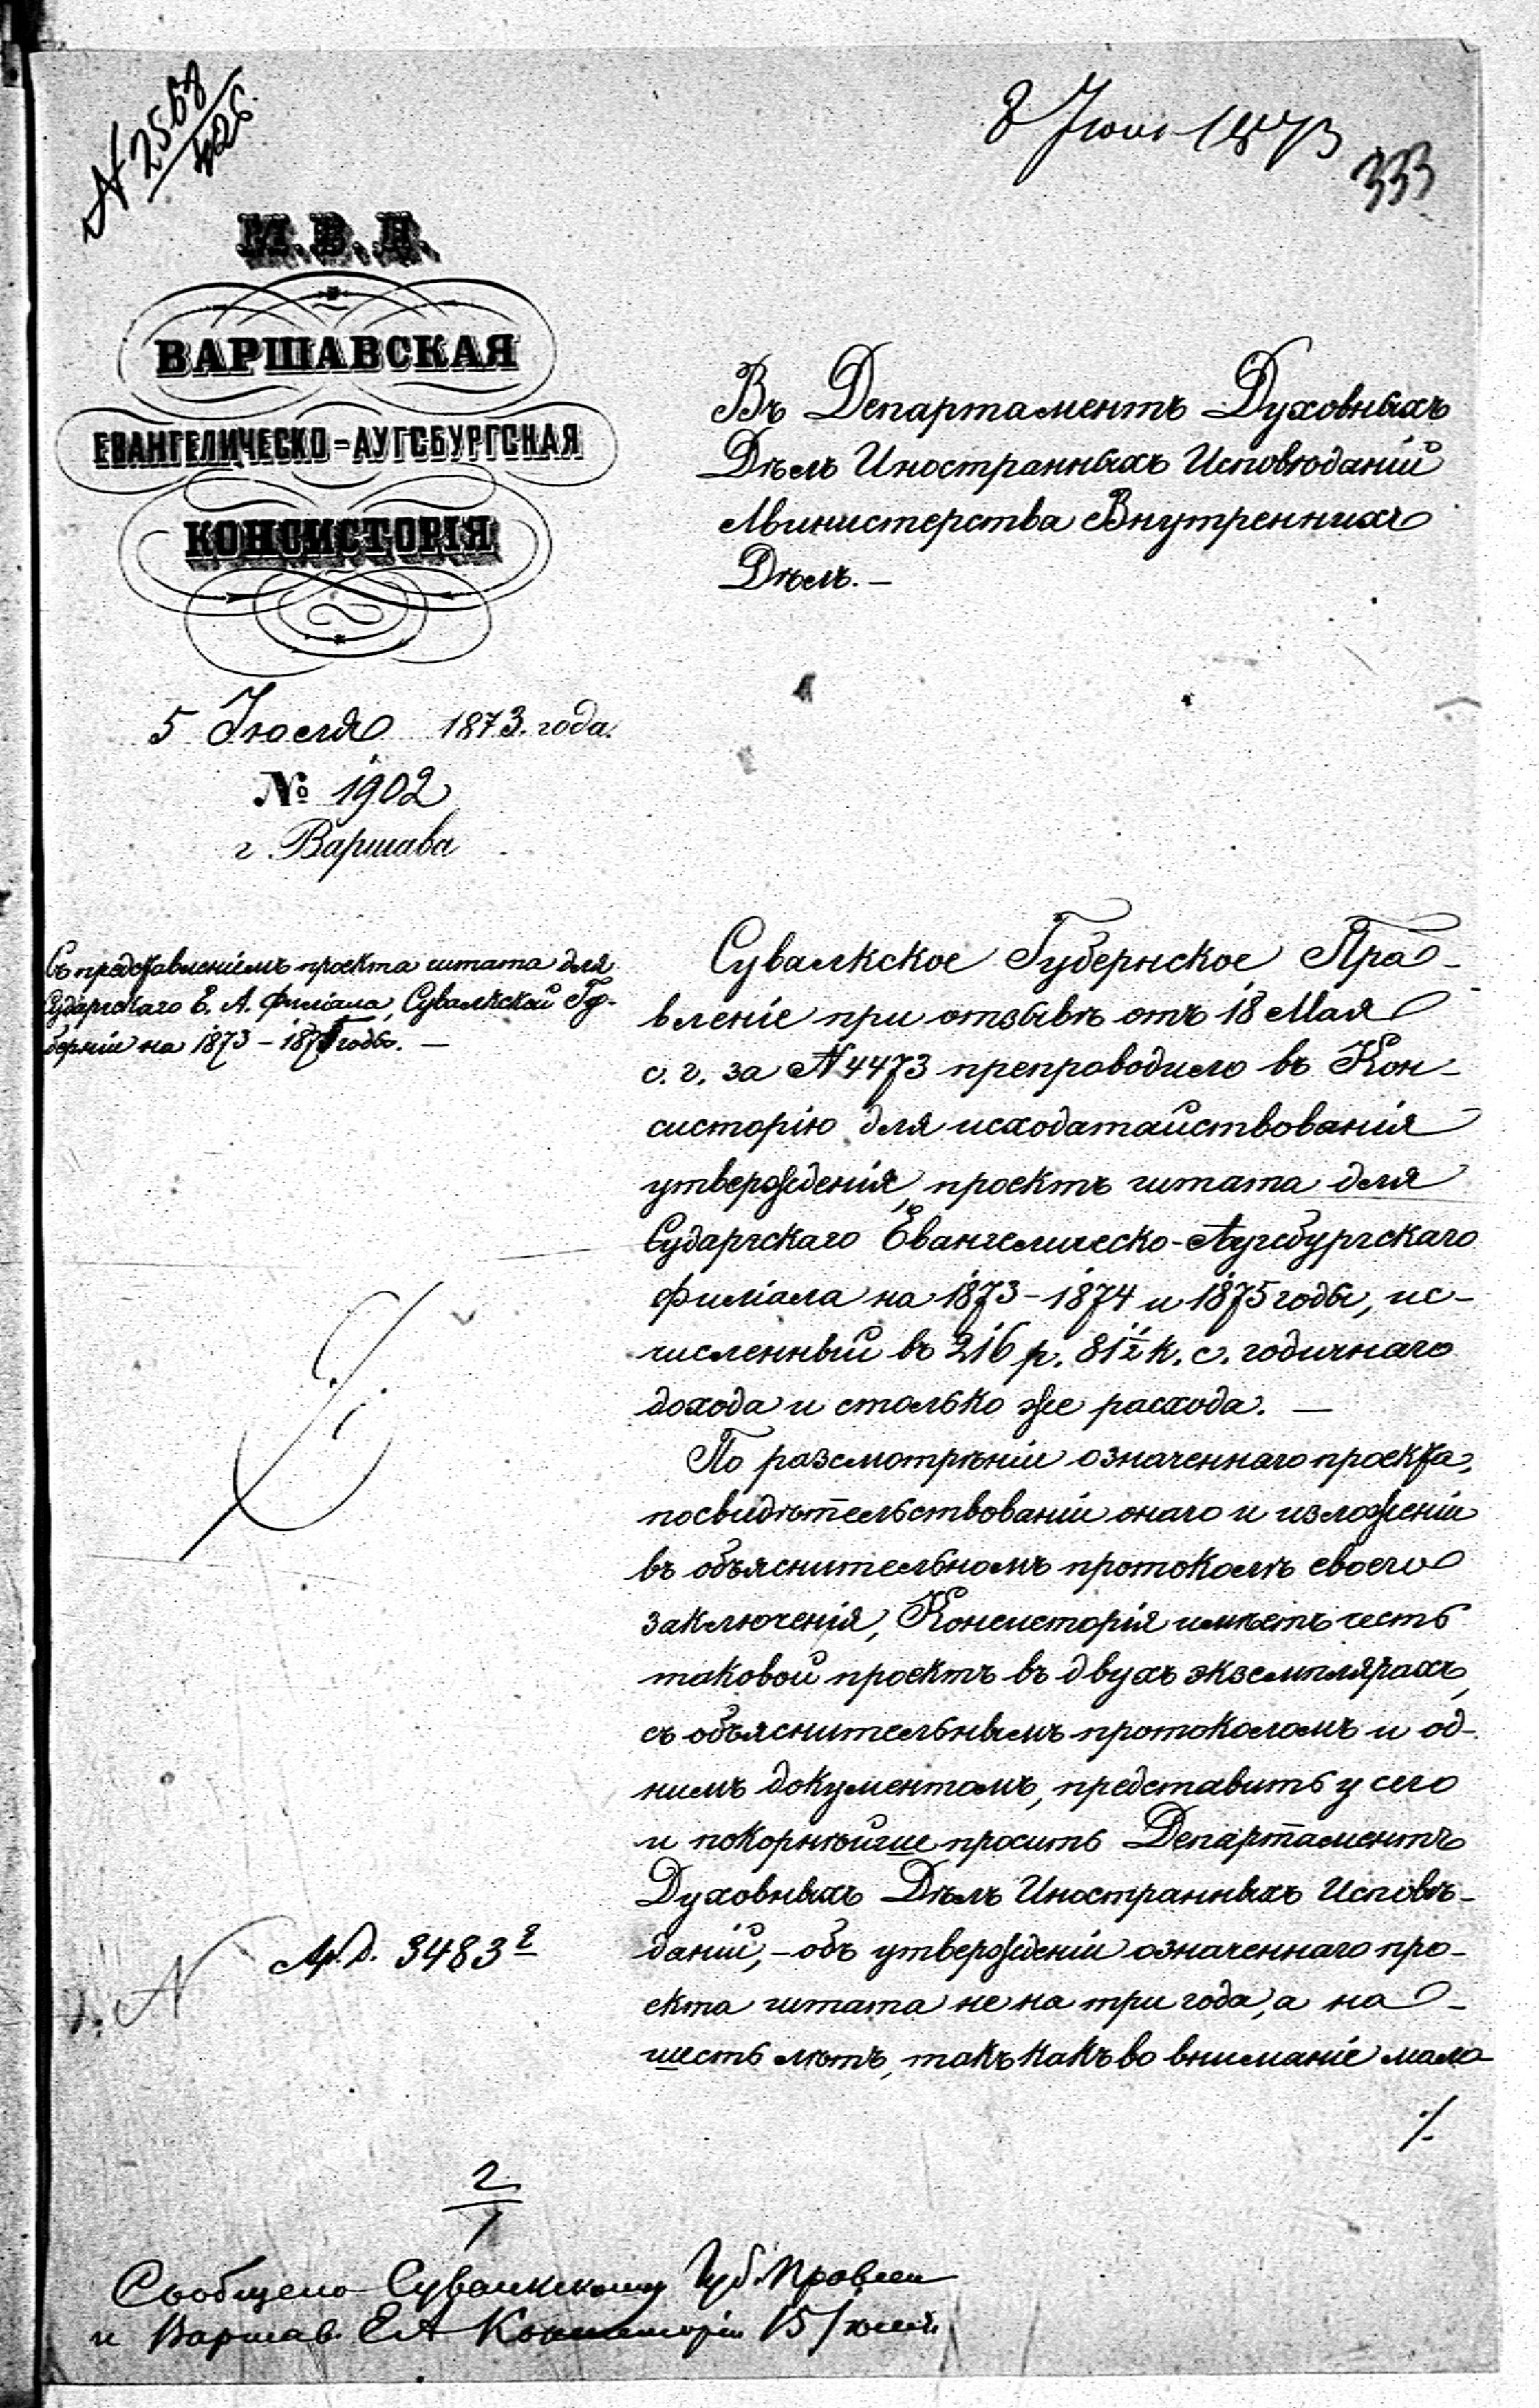 N 2568
426
8 Июля 1873
333
М. В. Д.
ВАРШАВСКАЯ
ЕВАНГЕЛИЧЕСКО-АУГСБУРГСКАЯ
КОНСИСТОРІЯ
5 Іюля 1873 года.
№ 1902
г. Варшава
Въ Департаментъ Духовныхъ
Дѣлъ Иностранныхъ Исповѣданій
Министерства Внутреннихъ
Дѣлъ. —
Съ представленіемъ проекта штата для
Сударгскаго Е. А. Филіала, Сувалкской Гу-
берніи на 1873 – 1875 годы. —
Сувалкское Губернское Пра-
вленіе при отзывѣ отъ 18 Мая
с. г. за N 4473 препроводило въ Кон-
систорію для исходатайствованія
утвержденія, проектъ штата для
Сударгскаго Евангелическо-Аугсбургскаго
Филіала на 1873 – 1874 и 1875 годы, ис-
численный въ 216 р. 81½ к. с. годичнаго
дохода и столько же расхода. —
По разсмотрѣніи означеннаго проекта,
посвидѣтельствованіи онаго и изложеніи
въ объяснительномъ протоколѣ своего
заключенія, Консисторія имѣетъ честь
таковой проектъ въ двухъ экземплярахъ,
съ объяснительнымъ протоколомъ и од-
нимъ документомъ, представить у сего
и покорнѣйше просить Департаментъ
Духовныхъ Дѣлъ Иностранныхъ Исповѣ-
даній, – объ утвержденіи означеннаго про-
екта штата не на три года, а на
шесть лѣтъ, такъ какъ во вниманіе мало
./.
3483
2
1
Сообщено Сувалкскому Губ. Правлен
и Варшав. ЕА Консисторіи 15 Іюля